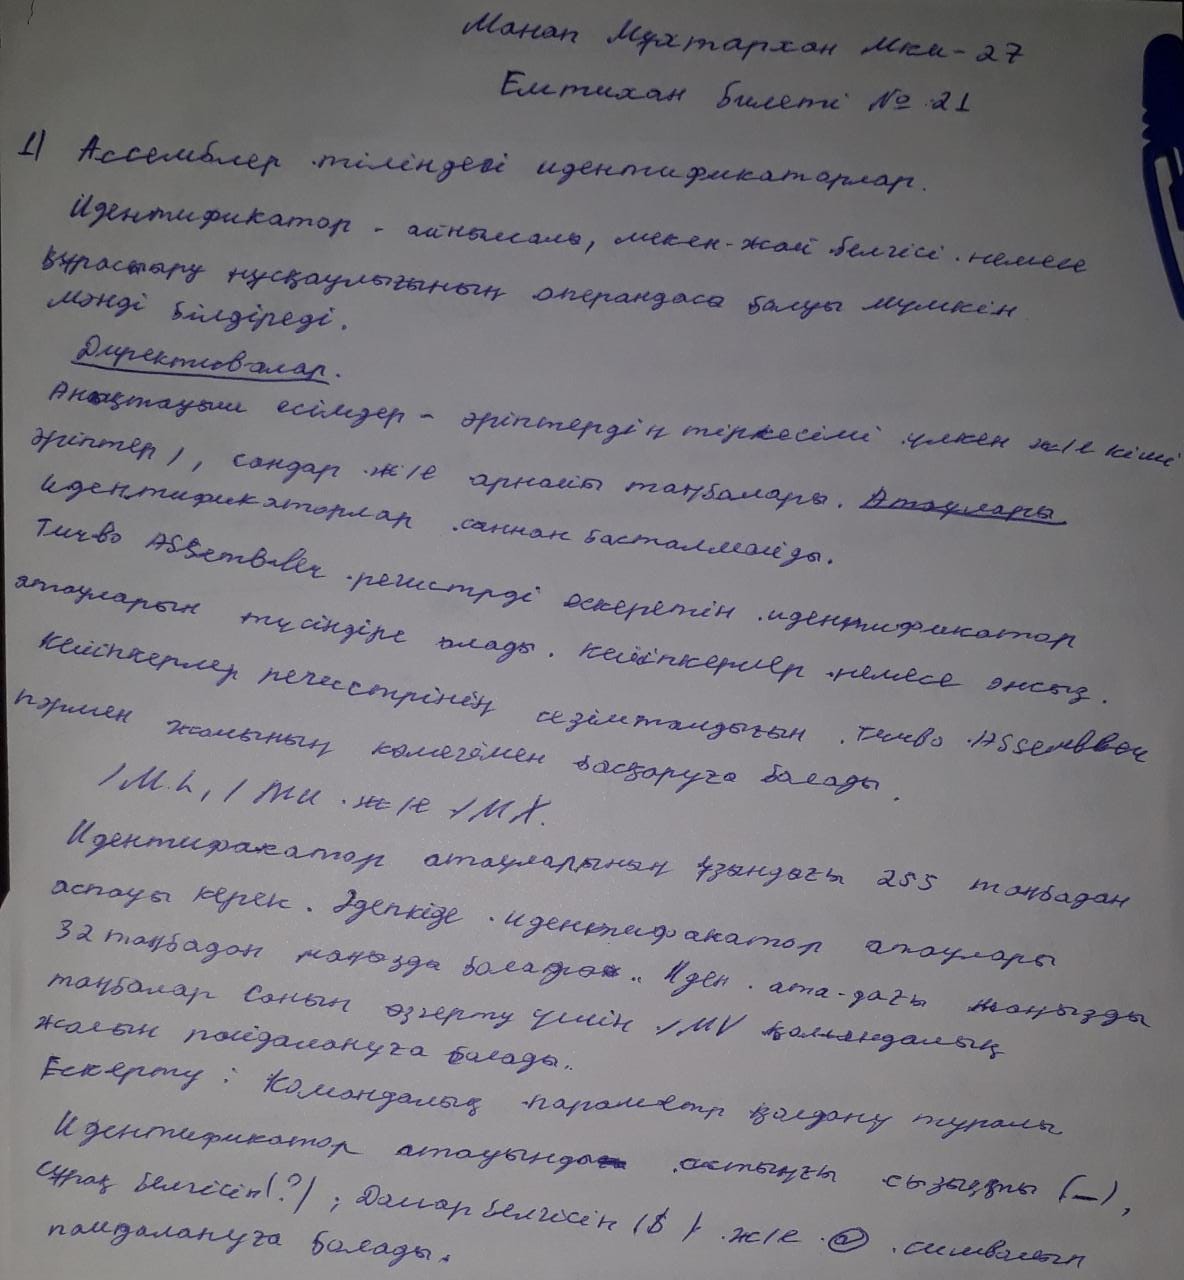 Манап Мұхтархан Мки-27
Емтихан билеті № 21
1) Ассемблер тіліндегі идентификаторлар.
Идентификатор - айнымалы, мекен-жай белгісі немесе
құрастыру нұсқаулығының операндасы болуы мүмкін
мәнді білдіреді.
Директивалар.
Анықтауыш есімдер - әріптердің тіркесімі үлкен ж/е кіші
әріптер), сандар ж/е арнайы таңбалары. Атаулары
идентификаторлар саннан басталмайды.
Turbo Assembler регистрді ескеретін идентификатор
атауларын түсіндіре алады. кейіпкерлер немесе онсыз.
Кейіпкерлер регистрінің сезімталдығын Turbo Assembler
пәрмен жолының көмегімен басқаруға болады.
/ML, /MU ж/е /MX.
Идентификатор атауларының ұзындығы 255 таңбадан
аспауы керек. Әдепкіде идентификатор атаулары
32 таңбадан маңызды болады. Иден. ата-дағы маңызды
таңбалар санын өзгерту үшін /MV командалық
жолын пайдалануға болады.
Ескерту: Командалық параметр қолдану туралы
Идентификатор атауында астыңғы сызықты (_),
сұрақ белгісін (?), Доллар белгісін ($) ж/е @ символын
пайдалануға болады.